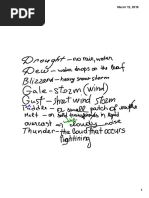 March 12, 2018
Drought - no rain, water
Dew - water drops on the leaf
Blizzard - heavy snow storm
Gale - storm (wind)
Gust - short wind storm
Puddle - a small patch of water
Melt - on solid transforms in liquid
overcast - cloudy
Thunder - the loud that occurs
lightning
1